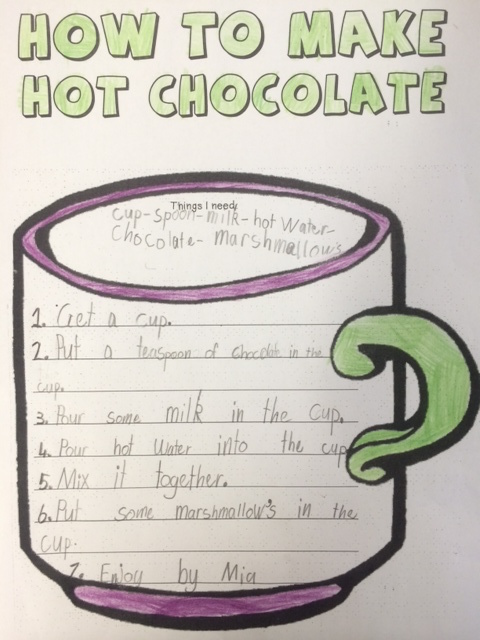 HOW TO MAKE
HOT CHOCOLATE
Things I need:
cup-spoon-milk-hot Water-
Chocolate- marshmallows
1. Get a cup.
2. Put a teaspoon of chocolate in the
cup.
3. Pour some milk in the cup.
4. Pour hot Water into the cup
5. Mix it together.
6. Put some marshmallow's in the
cup.
7. Enjoy by Mia